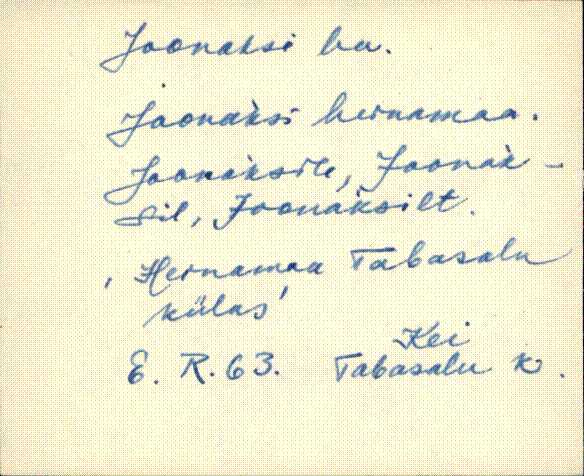 Joonaksi ha.
Joonaksi heinamaa.
Joonàksile, Joonàk-
sil, Joonàksilt.
'Heinamaa Tabasalu
külas'
Kei
E. R. 63. Tabasalu k.